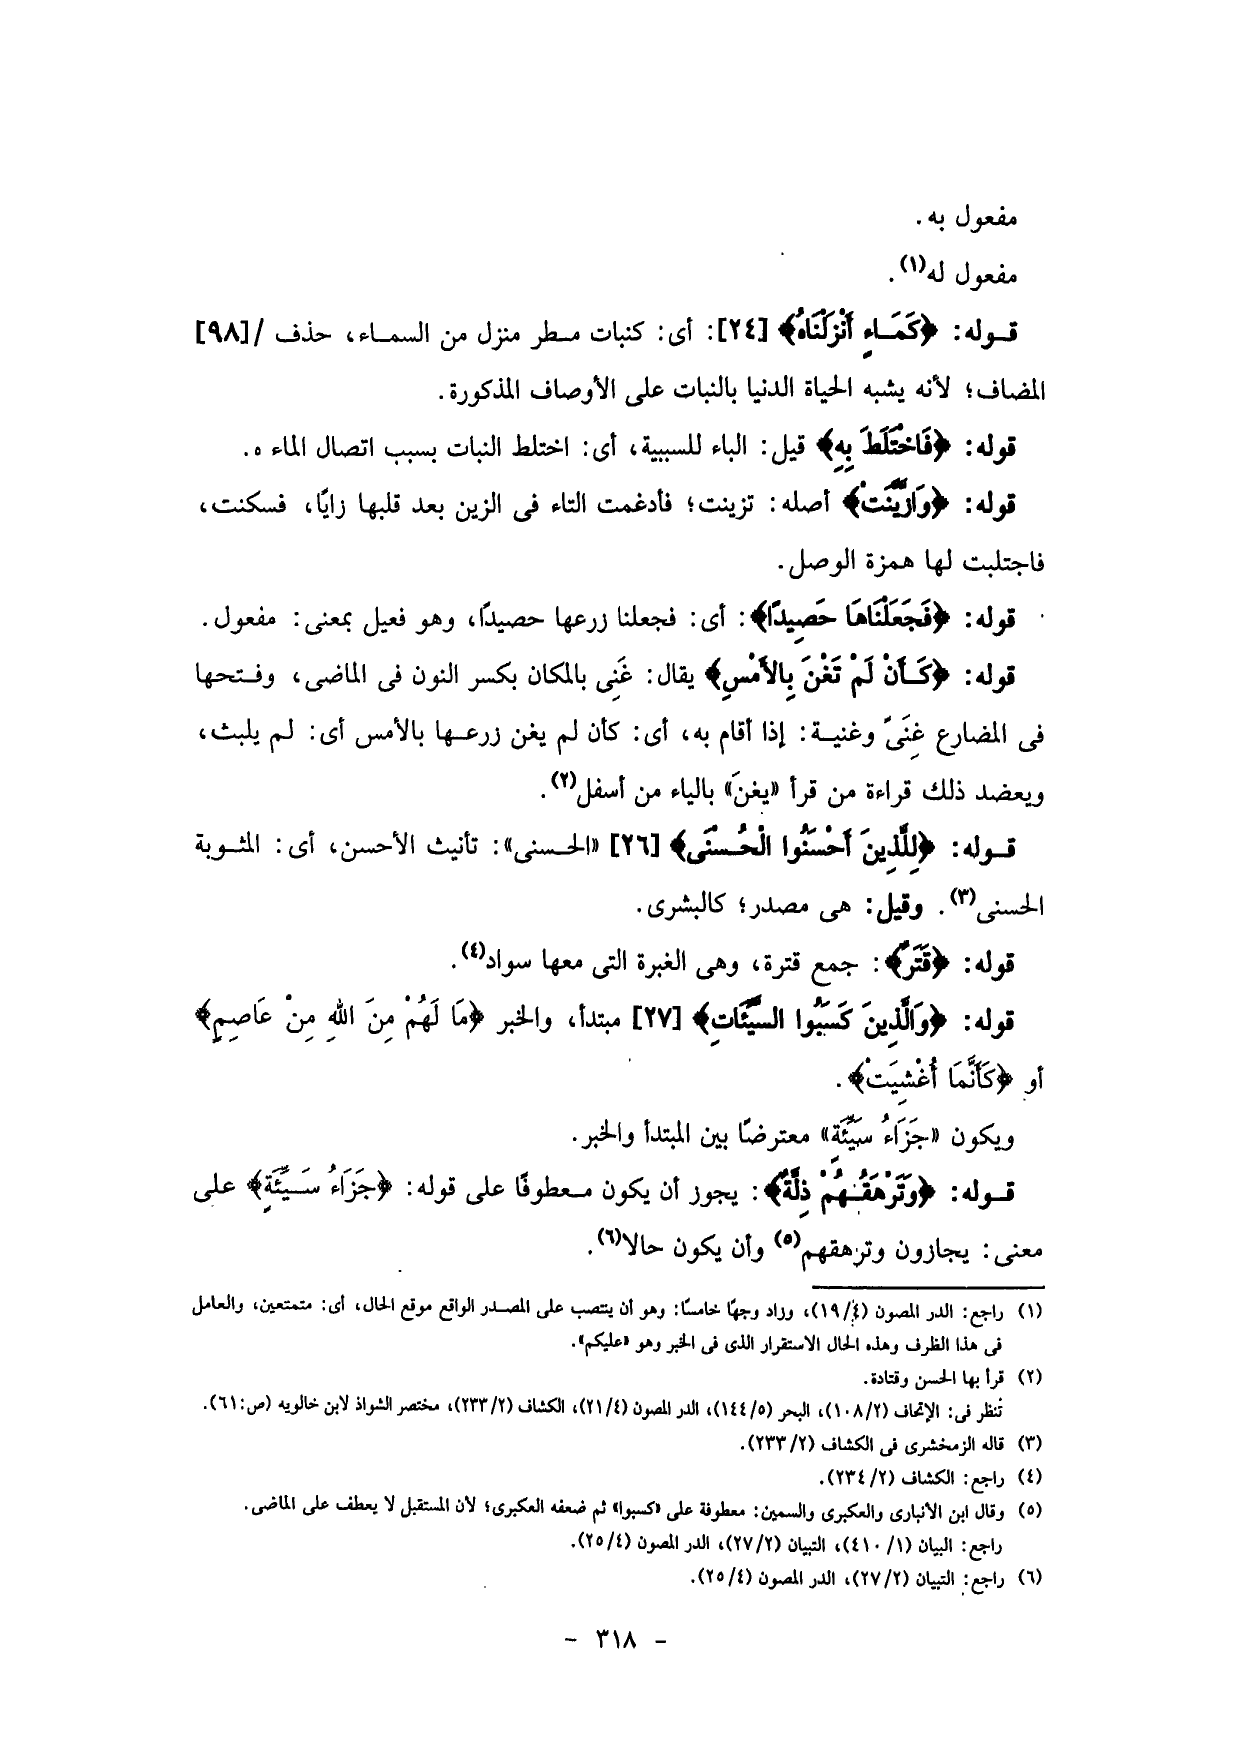 مفعول به.
مفعول له(١).
قوله: ﴿كَمَاءٍ أَنْزَلْنَاهُ﴾ [٢٤]: أى: كنبات مطر منزل من السماء، حذف /[٩٨]
المضاف؛ لأنه يشبه الحياة الدنيا بالنبات على الأوصاف المذكورة.
قوله: ﴿فَاخْتَلَطَ بِهِ﴾ قيل: الباء للسببية، أى: اختلط النبات بسبب اتصال الماء ه.
قوله: ﴿وَازَّيَّنَتْ﴾ أصله: تزينت؛ فأدغمت التاء فى الزين بعد قلبها زايًا، فسكنت،
فاجتلبت لها همزة الوصل.
قوله: ﴿فَجَعَلْنَاهَا حَصِيدًا﴾: أى: فجعلنا زرعها حصيدًا، وهو فعيل بمعنى: مفعول.
قوله: ﴿كَأَنْ لَمْ تَغْنَ بِالأَمْسِ﴾ يقال: غَنِى بالمكان بكسر النون فى الماضى، وفتحها
فى المضارع غِنَىً وغنية: إذا أقام به، أى: كأن لم يغن زرعها بالأمس أى: لم يلبث،
ويعضد ذلك قراءة من قرأ «يغنَ» بالياء من أسفل(٢).
قوله: ﴿لِلَّذِينَ أَحْسَنُوا الْحُسْنَى﴾ [٢٦] «الحسنى»: تأنيث الأحسن، أى: المثوبة
الحسنى(٣). وقيل: هى مصدر؛ كالبشرى.
قوله: ﴿قَتَرٌ﴾: جمع قترة، وهى الغبرة التى معها سواد(٤).
قوله: ﴿وَالَّذِينَ كَسَبُوا السَّيِّئَاتِ﴾ [٢٧] مبتدأ، والخبر ﴿مَا لَهُمْ مِنَ اللهِ مِنْ عَاصِمٍ﴾
أو ﴿كَأَنَّمَا أُغْشِيَتْ﴾.
ويكون «جَزَاءُ سَيِّئَةٍ» معترضًا بين المبتدأ والخبر.
قوله: ﴿وَتَرْهَقُهُمْ ذِلَّةٌ﴾: يجوز أن يكون معطوفًا على قوله: ﴿جَزَاءُ سَيِّئَةٍ﴾ على
معنى: يجازون وترهقهم(٥) وأن يكون حالا(٦).
(١) راجع: الدر المصون (١٩/٤)، وزاد وجهًا خامسًا: وهو أن ينتصب على المصدر الواقع موقع الحال، أى: متمتعين، والعامل
فى هذا الظرف وهذه الحال الاستقرار الذى فى الخبر وهو «عليكم».
(٢) قرأ بها الحسن وقتادة.
تُنظر فى: الإتحاف (١٠٨/٢)، البحر (١٤٤/٥)، الدر المصون (٢١/٤)، الكشاف (٢٣٣/٢)، مختصر الشواذ لابن خالويه (ص:٦١).
(٣) قاله الزمخشرى فى الكشاف (٢٣٣/٢).
(٤) راجع: الكشاف (٢٣٤/٢).
(٥) وقال ابن الأنبارى والعكبرى والسمين: معطوفة على «كسبوا» ثم ضعفه العكبرى؛ لأن المستقبل لا يعطف على الماضى.
راجع: البيان (٤١٠/١)، التبيان (٢٧/٢)، الدر المصون (٢٥/٤).
(٦) راجع: التبيان (٢٧/٢)، الدر المصون (٢٥/٤).
- ٣١٨ -